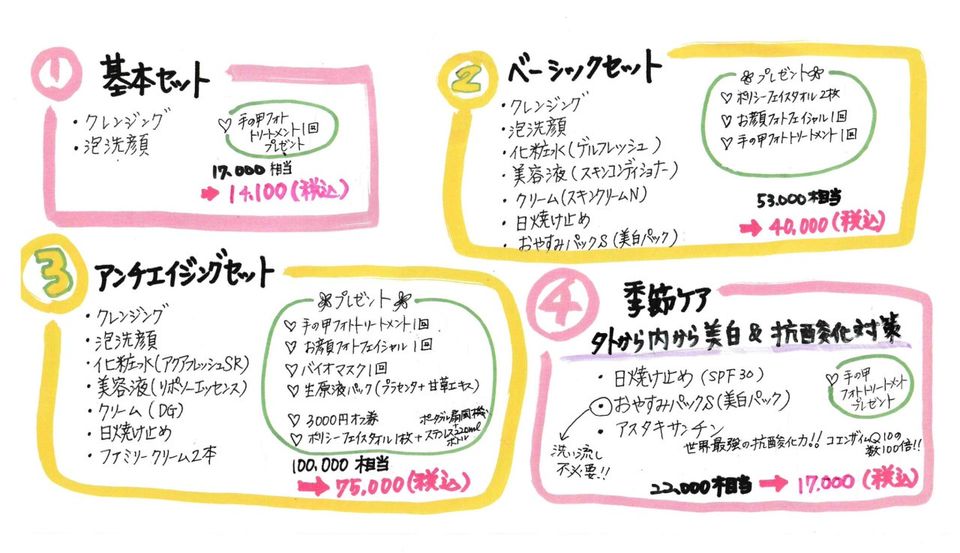 1 基本セット
・クレンジング
・泡洗顔
♡手の甲フォト
トリートメント1回
プレゼント
17,000相当
→14,100(税込)
2 ベーシックセット
・クレンジング
・泡洗顔
・化粧水(ゲルフレッシュ)
・美容液(スキンコンディショナー)
・クリーム(スキンクリームN)
・日焼け止め
・おやすみパックS(美白パック)
プレゼント
♡ポリシーフェイスタオル2枚
♡お顔フォトフェイシャル1回
♡手の甲フォトトリートメント1回
53,000相当
→40,000(税込)
3 アンチエイジングセット
・クレンジング
・泡洗顔
・化粧水(アクアフレッシュSR)
・美容液(リポソーエッセンス)
・クリーム(DG)
・日焼け止め
・ファミリークリーム2本
プレゼント
♡手の甲フォトトリートメント1回
♡お顔フォトフェイシャル1回
♡バイオマスク1回
♡生原液パック(プラセンタ+甘草エキス)
♡3000円オフ券
♡ポリシーフェイスタオル1枚+ステンレス520mlボトル
ポータブル扇風機
100,000相当
→75,000(税込)
4 季節ケア
外から内から美白&抗酸化対策
・日焼け止め(SPF30)
・おやすみパックS(美白パック)
・アスタキサンチン
世界最強の抗酸化力!!コエンザイムQ10の
数100倍!!
洗い流し
不必要!!
♡手の甲
フォトトリートメント
プレゼント
22,000相当→17,000(税込)